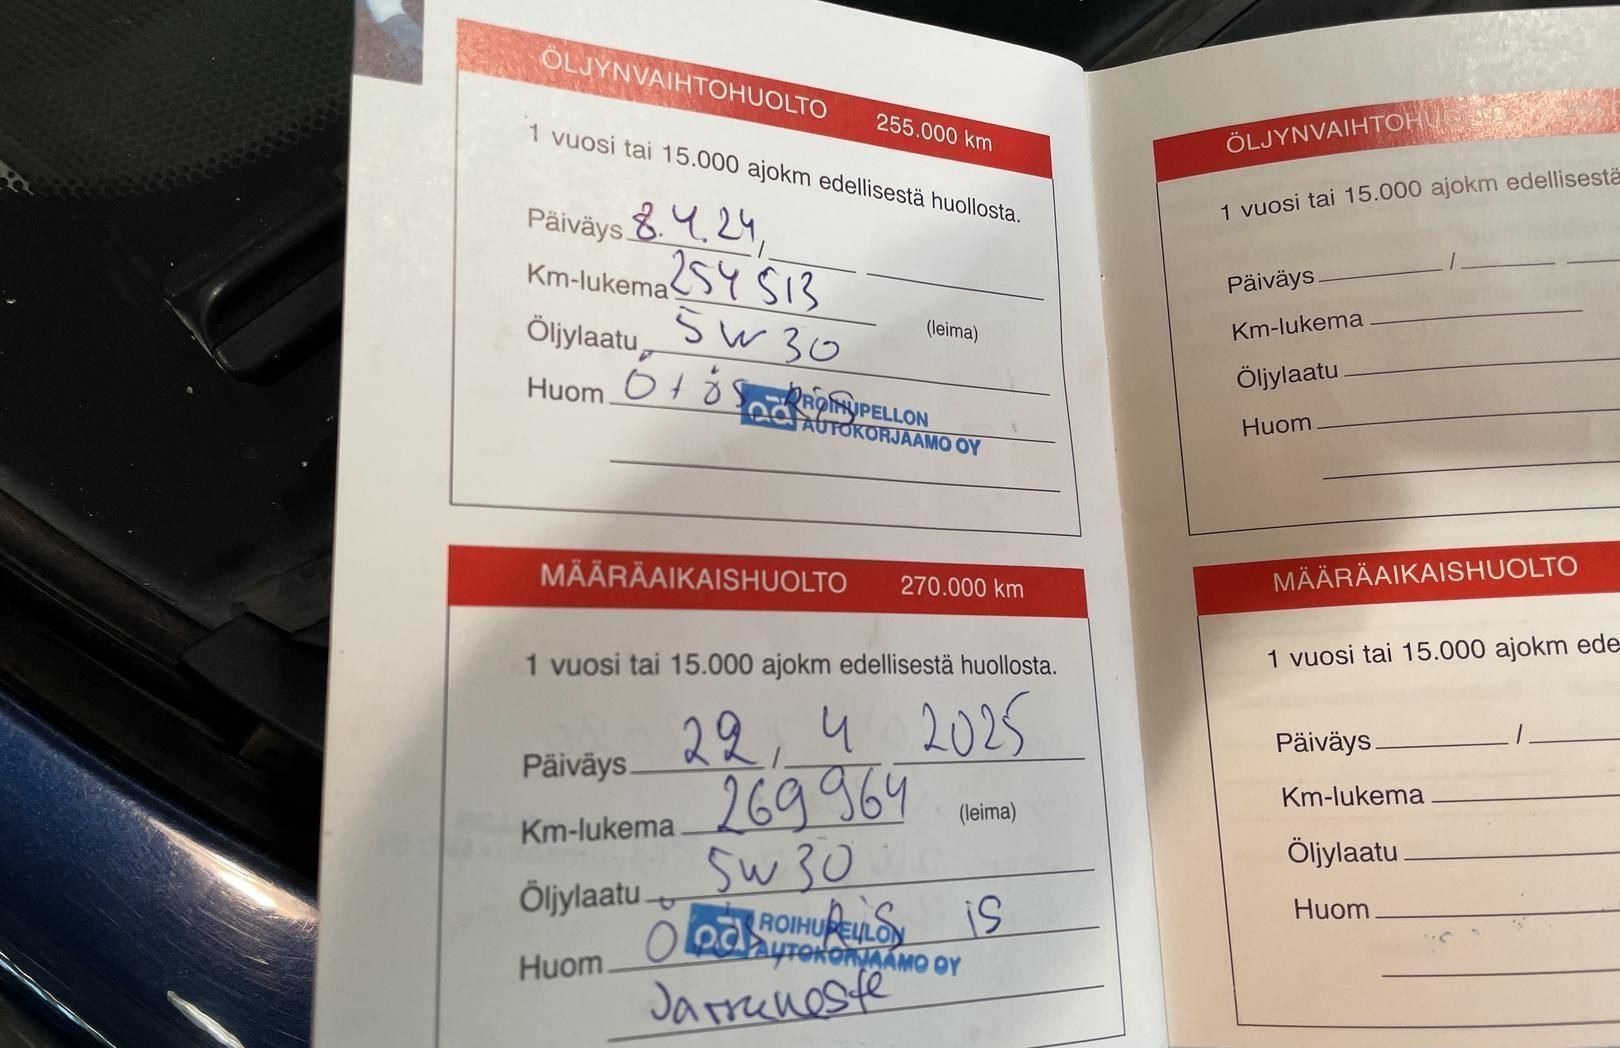 ÖLJYNVAIHTOHUOLTO 255.000 km
1 vuosi tai 15.000 ajokm edellisestä huollosta.
Päiväys 8.4.24 /
Km-lukema 254 513
(leima)
Öljylaatu 5W30
Huom Ö + ös RiS
ad ROIHUPELLON
AUTOKORJAAMO OY
MÄÄRÄAIKAISHUOLTO 270.000 km
1 vuosi tai 15.000 ajokm edellisestä huollosta.
Päiväys 22 / 4 2025
Km-lukema 269 964 (leima)
Öljylaatu 5W30
Huom Ö RiS iS
ad ROIHUPELLON
AUTOKORJAAMO OY
Jarruneste
ÖLJYNVAIHTOHUOLTO
1 vuosi tai 15.000 ajokm edellisestä
Päiväys /
Km-lukema
Öljylaatu
Huom
MÄÄRÄAIKAISHUOLTO
1 vuosi tai 15.000 ajokm ede
Päiväys /
Km-lukema
Öljylaatu
Huom